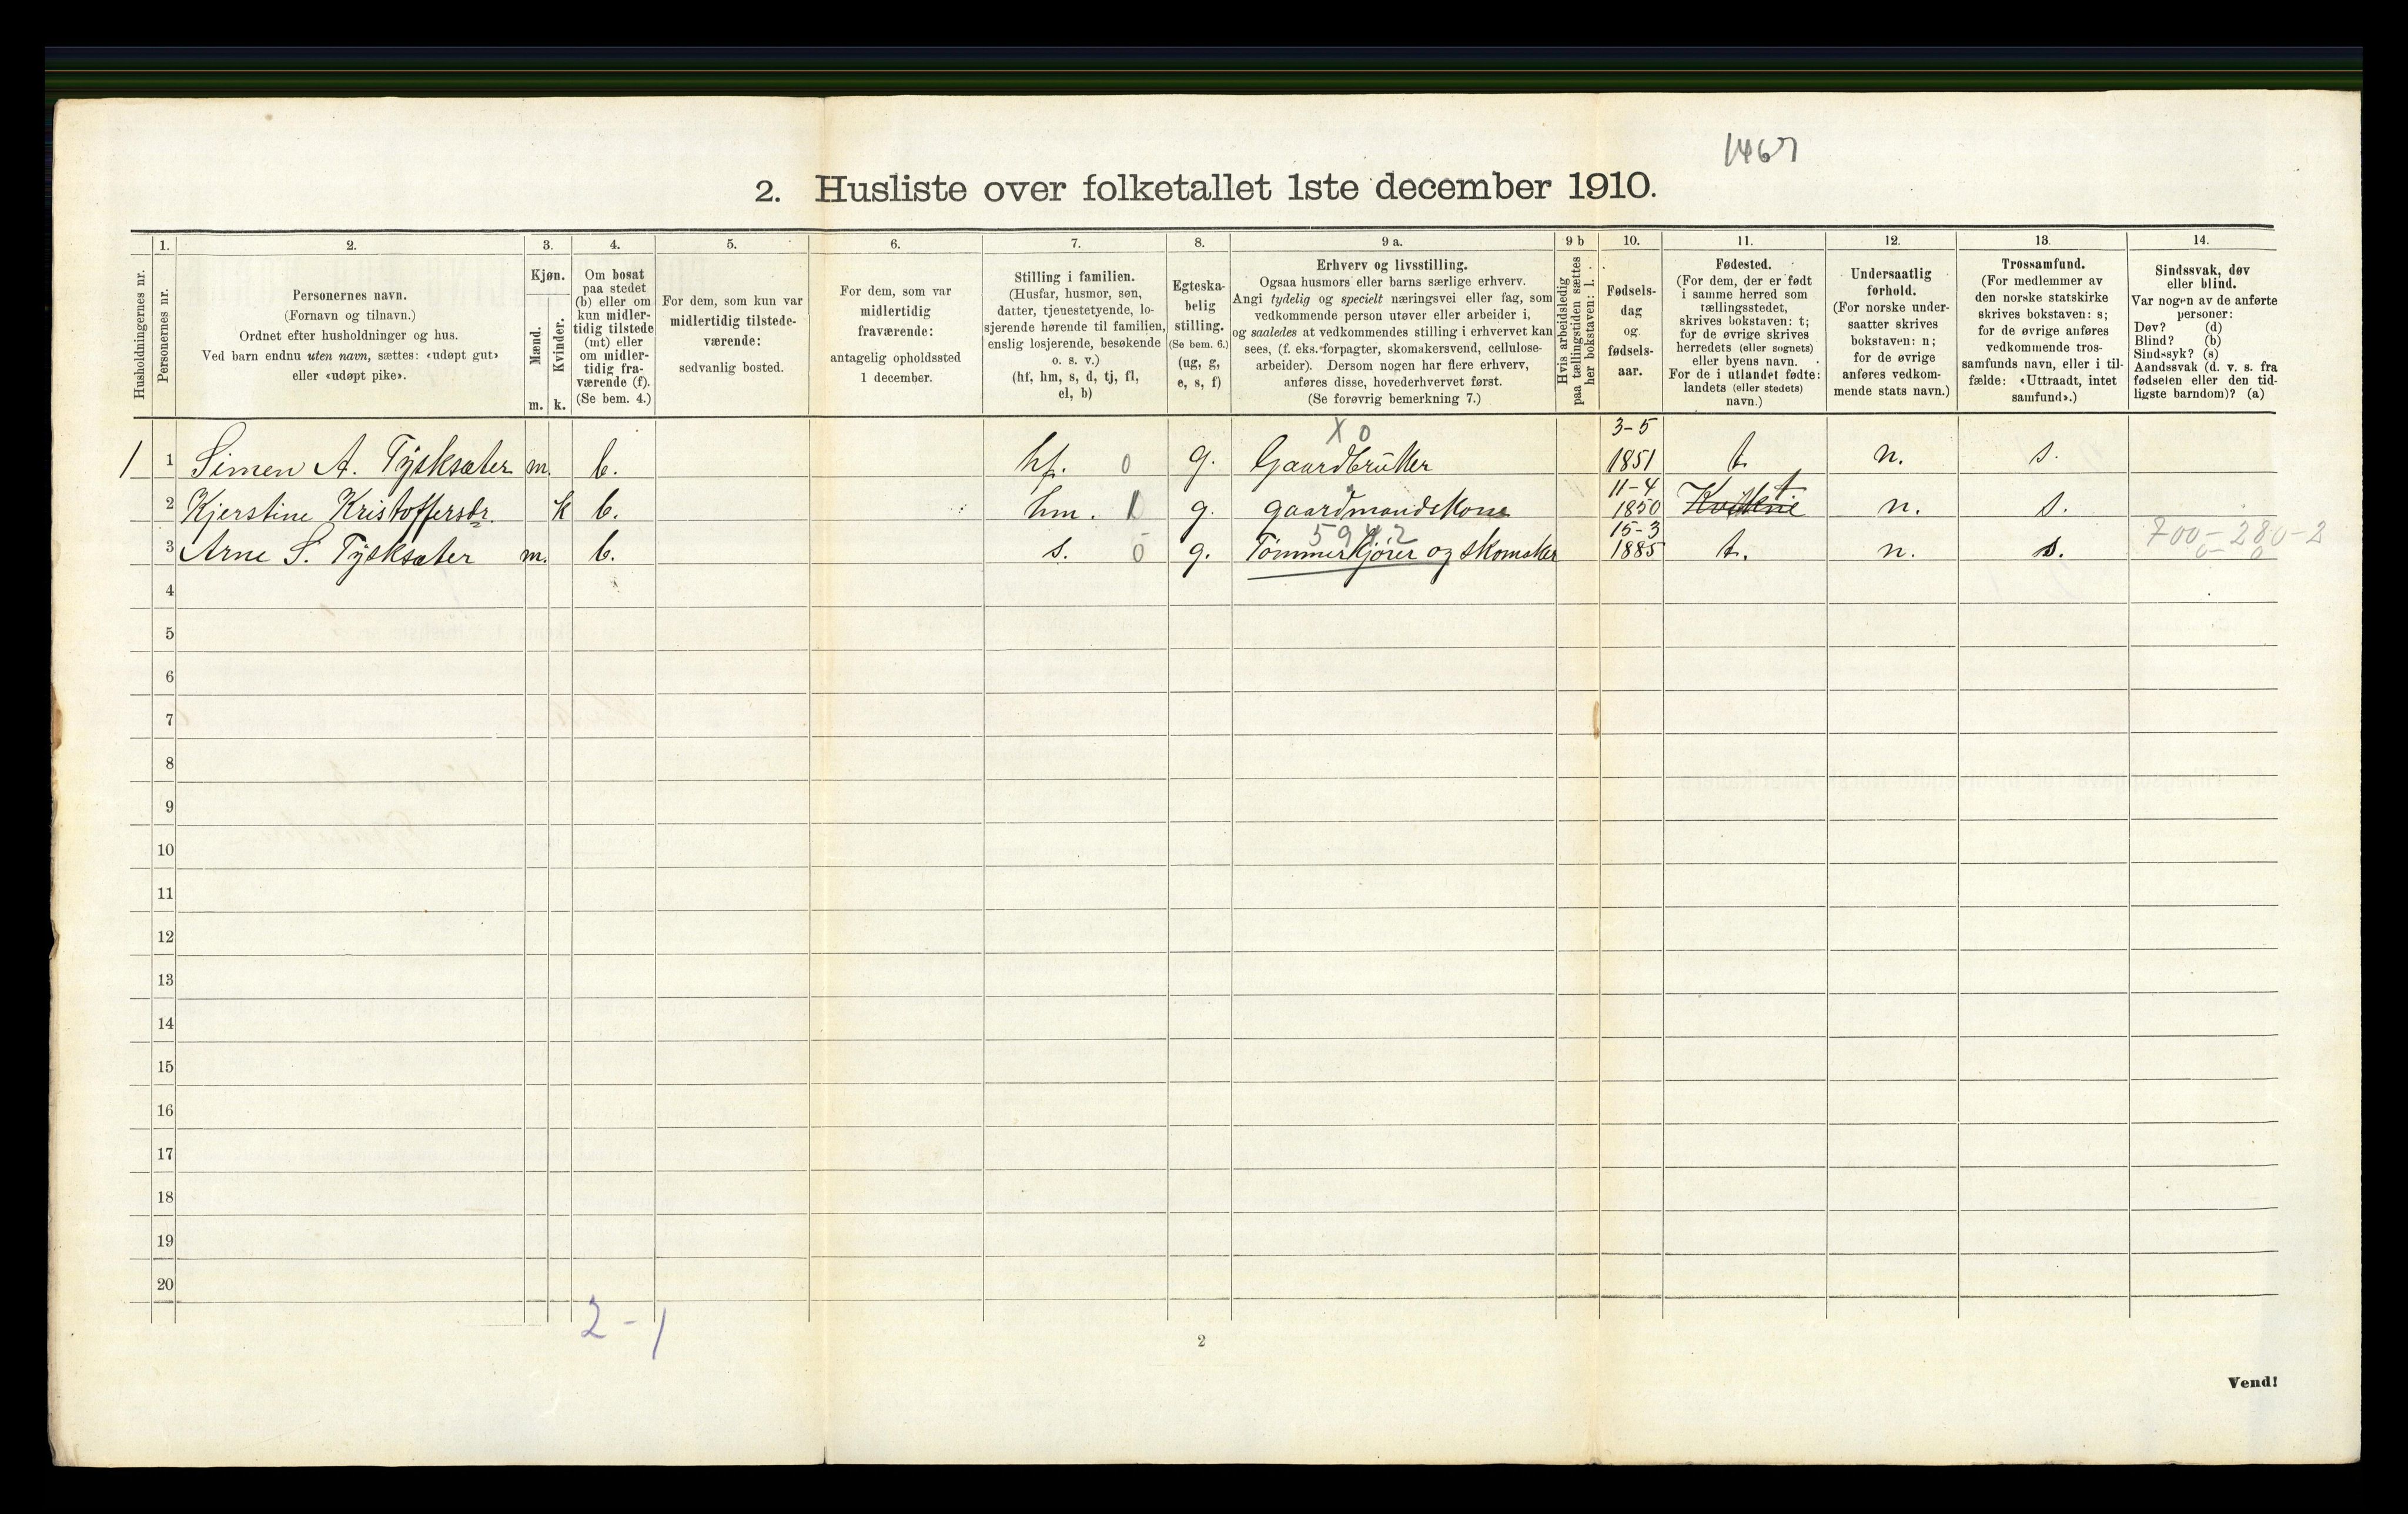 1467
2. Husliste over folketallet 1ste december 1910.
Husholdningernes nr.
1.
Personernes nr.
2.
Personernes navn.
(Fornavn og tilnavn.)
Ordnet efter husholdninger og hus.
Ved barn endnu uten navn, sættes: «udøpt gut»
eller «udøpt pike».
3.
Kjøn.
Mænd.
Kvinder.
m. k.
4.
Om bosat
paa stedet
(b) eller om
kun midler-
tidig tilstede
(mt) eller
om midler-
tidig fra-
værende (f).
(Se bem. 4.)
5.
For dem, som kun var
midlertidig tilstede-
værende:
sedvanlig bosted.
6.
For dem, som var
midlertidig
fraværende:
antagelig opholdssted
1 december.
7.
Stilling i familien.
(Husfar, husmor, søn,
datter, tjenestetyende, lo-
sjerende hørende til familien,
enslig losjerende, besøkende
o. s. v.)
(hf, hm, s, d, tj, fl,
el, b)
8.
Egteska-
belig
stilling.
(Se bem. 6.)
(ug, g,
e, s, f)
9 a.
Erhverv og livsstilling.
Ogsaa husmors eller barns særlige erhverv.
Angi tydelig og specielt næringsvei eller fag, som
vedkommende person utøver eller arbeider i,
og saaledes at vedkommendes stilling i erhvervet kan
sees, (f. eks. forpagter, skomakersvend, cellulose-
arbeider). Dersom nogen har flere erhverv,
anføres disse, hovederhvervet først.
(Se forøvrig bemerkning 7.)
9 b
Hvis arbeidsledig
paa tællingstiden sættes
her bokstaven: l.
10.
Fødsels-
dag
og
fødsels-
aar.
11.
Fødested.
(For dem, der er født
i samme herred som
tællingsstedet,
skrives bokstaven: t;
for de øvrige skrives
herredets (eller sognets)
eller byens navn.
For de i utlandet fødte:
landets (eller stedets)
navn.)
12.
Undersaatlig
forhold.
(For norske under-
saatter skrives
bokstaven: n;
for de øvrige
anføres vedkom-
mende stats navn.)
13.
Trossamfund.
(For medlemmer av
den norske statskirke
skrives bokstaven: s;
for de øvrige anføres
vedkommende tros-
samfunds navn, eller i til-
fælde: «Uttraadt, intet
samfund».)
14.
Sindssvak, døv
eller blind.
Var nogen av de anførte
personer:
Døv? (d)
Blind? (b)
Sindssyk? (s)
Aandssvak (d. v. s. fra
fødselen eller den tid-
ligste barndom)? (a)
X 0 3-5
1 1 Simen A. Tysksæter m. b. hf. 0 g. Gaardbruker 1851 t. n. s.
11-4 t
2 Kjerstine Kristoffersdr. k b. hm. 1 g. gaardmandskone 1850 n. s.
5942 15-3 700-280-2
3 Arne S. Tysksæter m. b. s. 0 g. Tømmerkjører og skomaker 1885 t. n. s. 0- 0
4
5
6
7
8
9
10
11
12
13
14
15
16
17
18
19
20
2-1
2
Vend!